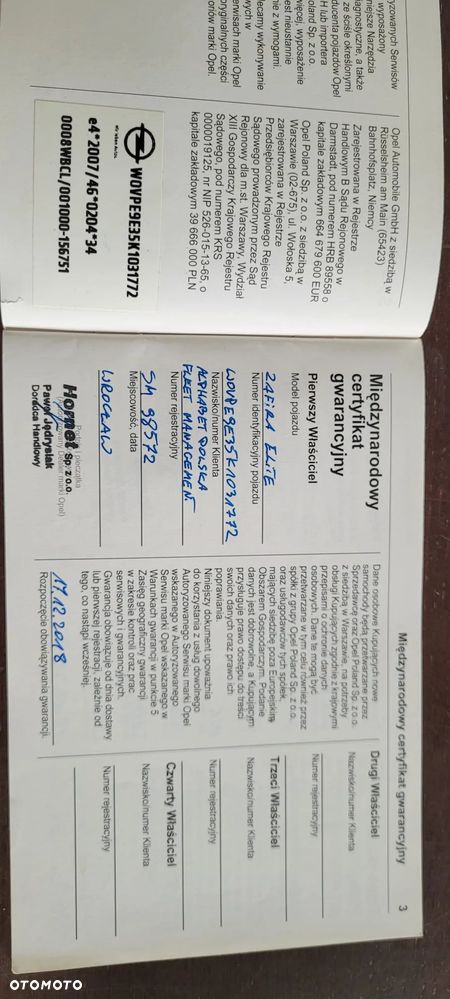 yzowanych Serwisów
wyposażony
niejsze Narzędzia
iagnostyczne, a także
ze ściśle określonymi
ducenta pojazdów Opel
H lub importera
oland Sp. z o.o.
więcej, wyposażenie
jest nieustannie
nie z wymogami.
lecamy wykonywanie
wych w
erwisach marki Opel
oryginalnych części
oriów marki Opel.
Opel Automobile GmbH z siedzibą w
Rüsselsheim am Main (65423)
Bahnhofsplatz, Niemcy
Zarejestrowana w Rejestrze
Handlowym B Sądu Rejonowego w
Darmstadt, pod numerem HRB 89558 o
kapitale zakładowym 664 679 600 EUR
Opel Poland Sp. z o.o. z siedzibą w
Warszawie (02-675), ul. Wołoska 5,
zarejestrowana w Rejestrze
Przedsiębiorców Krajowego Rejestru
Sądowego prowadzonym przez Sąd
Rejonowy dla m.st. Warszawy, Wydział
XIII Gospodarczy Krajowego Rejestru
Sądowego, pod numerem KRS
0000019125, nr NIP 526-015-13-65, o
kapitale zakładowym 39 666 000 PLN
W0VPE9E35K1031772
e4*2007/46*0204*34
0008WBCL/001000-156751
Międzynarodowy certyfikat gwarancyjny
3
Międzynarodowy
certyfikat
gwarancyjny
Pierwszy Właściciel
Model pojazdu
ZAFIRA ELITE
Numer identyfikacyjny pojazdu
W0VPE9E35K1031772
Nazwisko/numer Klienta
ALPHABET POLSKA
FLEET MANAGEMENT
Numer rejestracyjny
SM 98572
Miejscowość, data
WROCŁAW
Podpis i pieczątka
(Autoryzowany Dealer marki Opel)
Homet Sp. z o.o.
Paweł Jędrysiak
Doradca Handlowy
Dane osobowe Kupujących nowe
samochody będą przetwarzane przez
Sprzedawcę oraz Opel Poland Sp. z o.o.
z siedzibą w Warszawie, na potrzeby
obsługi Kupujących zgodnie z krajowymi
przepisami o ochronie danych
osobowych. Dane te mogą być
przetwarzane w tym celu również przez
spółki z grupy Opel Poland Sp. z o.o.
oraz usługodawców tych spółek,
mających siedzibę poza Europejskim
Obszarem Gospodarczym. Podanie
danych jest dobrowolne, a Kupującym
przysługuje prawo dostępu do treści
swoich danych oraz prawo ich
poprawiania.
Niniejszy dokument upoważnia
do korzystania z usług dowolnego
Autoryzowanego Serwisu marki Opel
wskazanego w Autoryzowanego
Serwisu marki Opel wskazanego w
Warunkach gwarancji w punkcie 5
Zasięg geograficzny gwarancji
w zakresie kontroli oraz prac
serwisowych i gwarancyjnych.
Gwarancja obowiązuje od dnia dostawy
lub pierwszej rejestracji, zależnie od
tego, co nastąpi wcześniej.
17.12.2018
Rozpoczęcie obowiązywania gwarancji:
Drugi Właściciel
Nazwisko/numer Klienta
Numer rejestracyjny
Trzeci Właściciel
Nazwisko/numer Klienta
Numer rejestracyjny
Czwarty Właściciel
Nazwisko/numer Klienta
Numer rejestracyjny
OTOMOTO